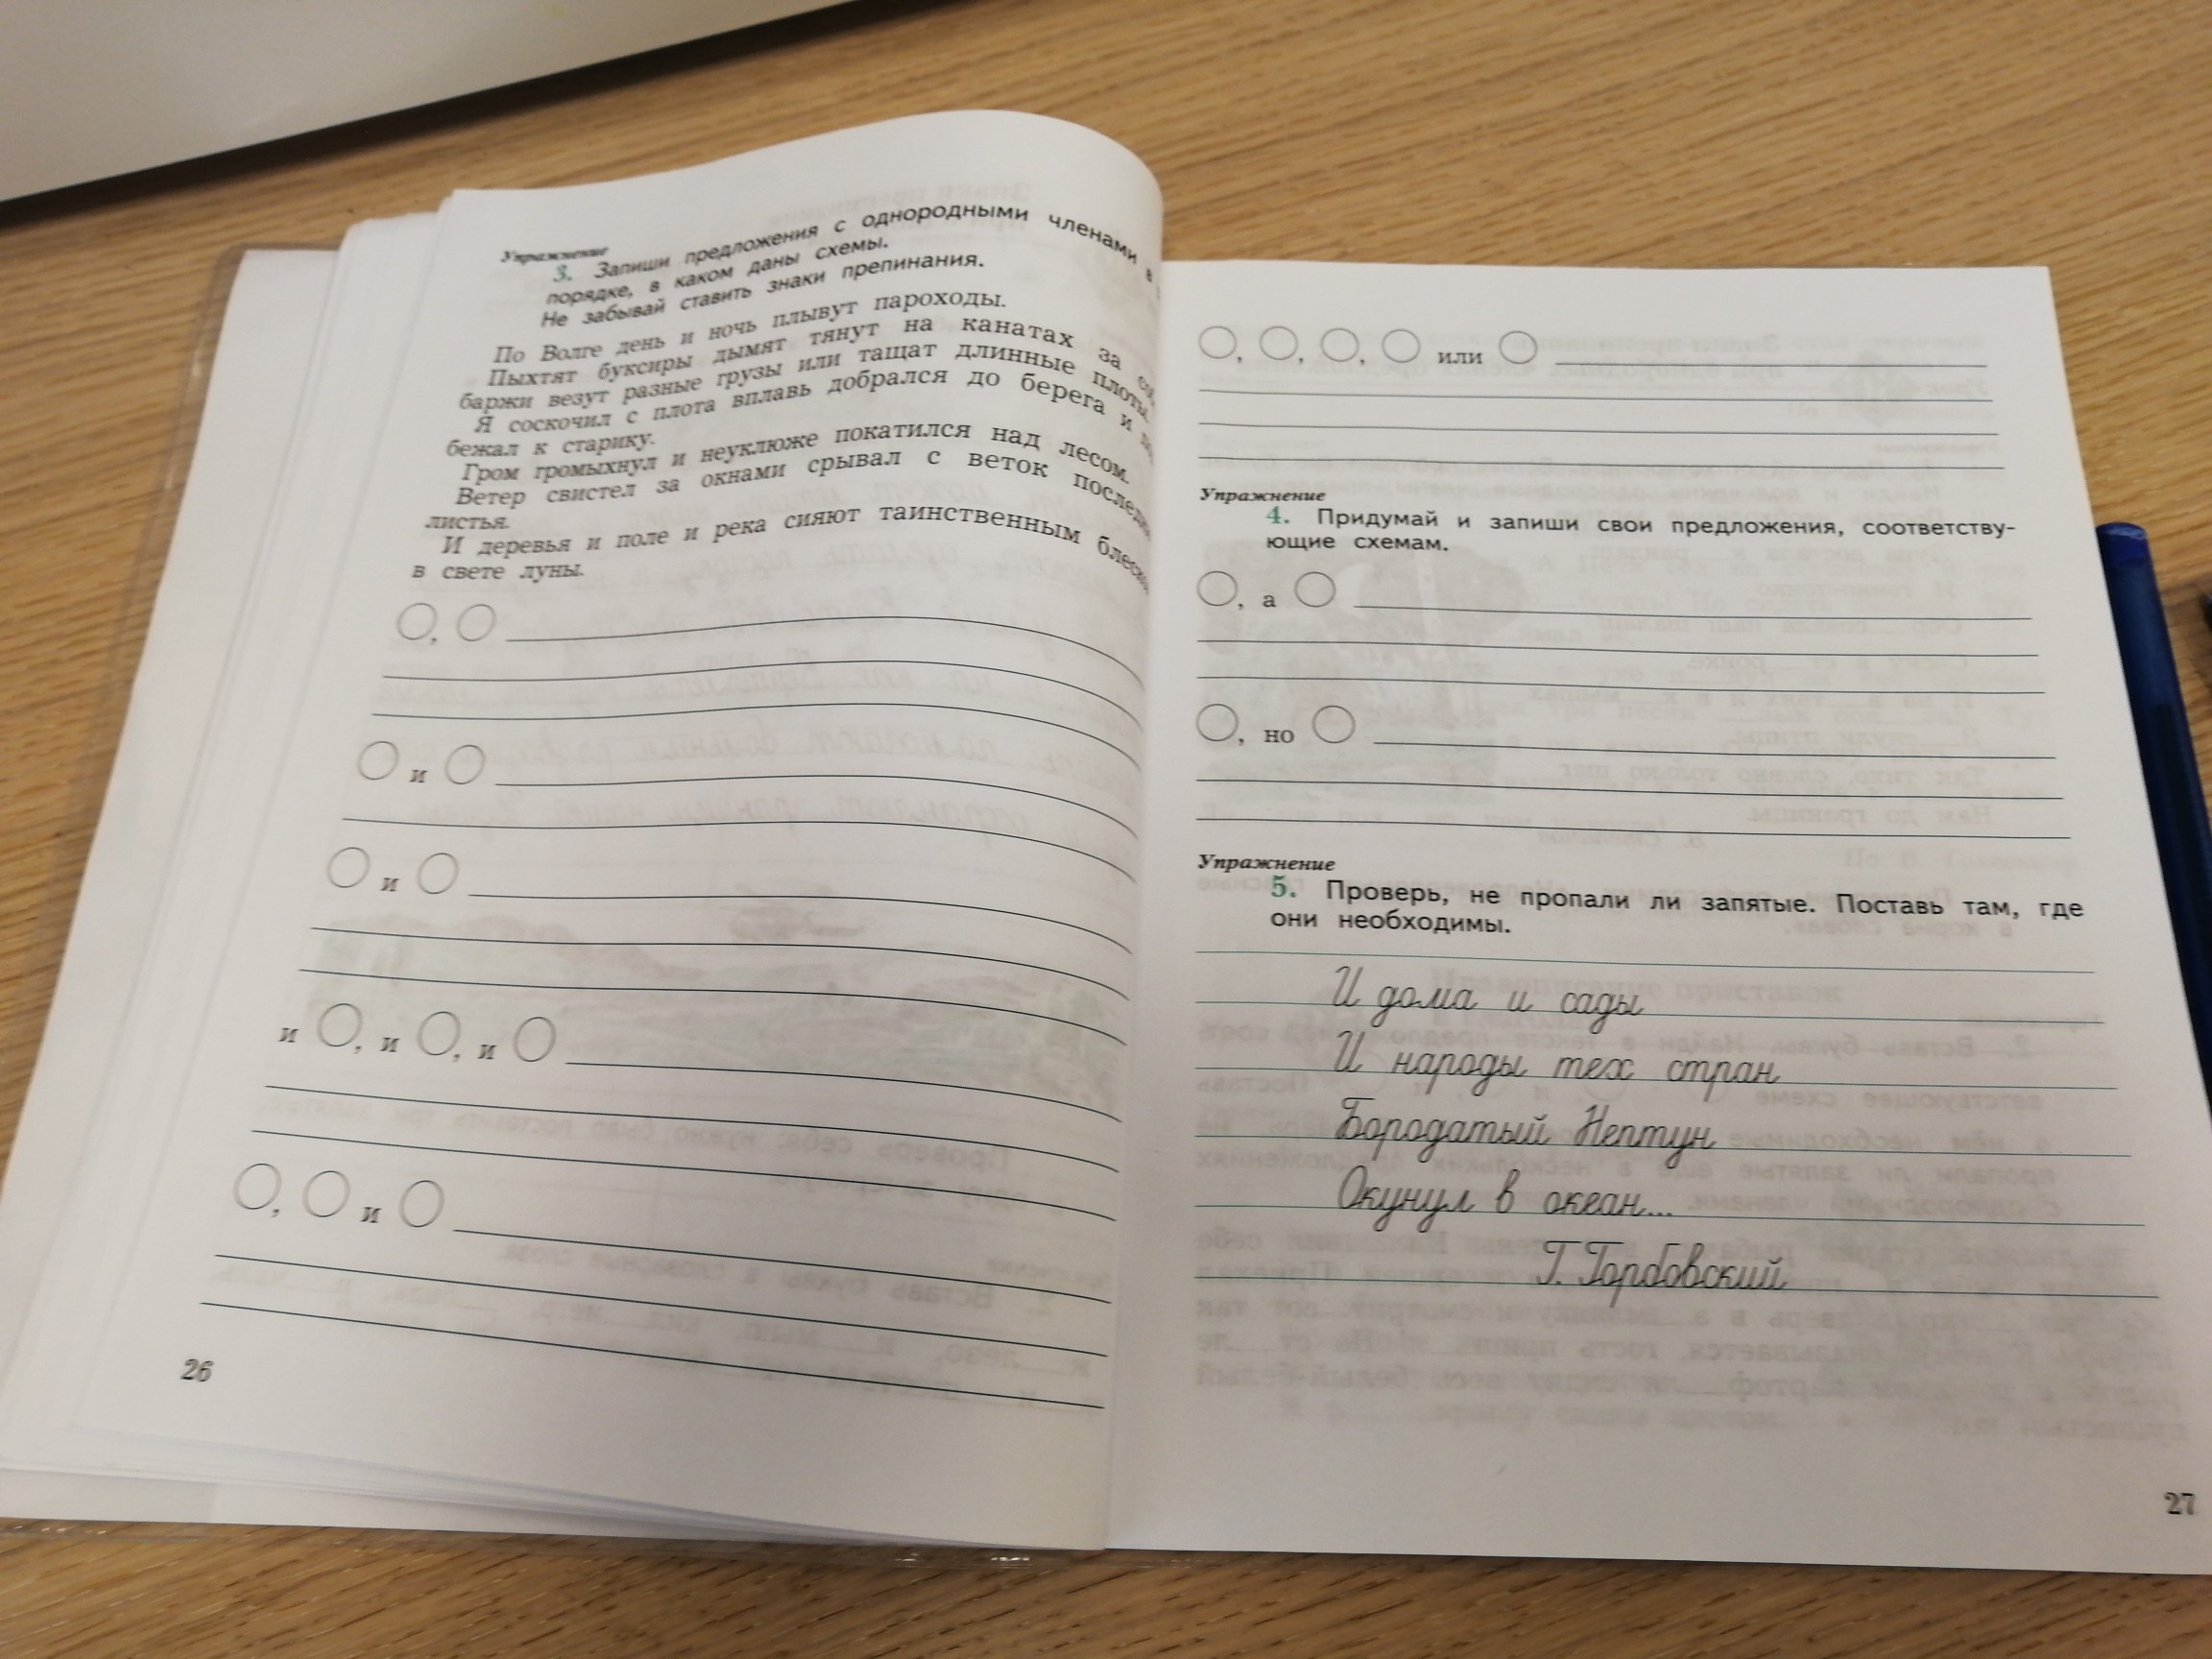 Упражнение
3. Запиши предложения с однородными членами в
порядке, в каком даны схемы.
Не забывай ставить знаки препинания.
По Волге день и ночь плывут пароходы.
Пыхтят буксиры дымят тянут на канатах за
баржи везут разные грузы или тащат длинные плоты.
Я соскочил с плота вплавь добрался до берега и
бежал к старику.
Гром громыхнул и неуклюже покатился над лесом.
Ветер свистел за окнами срывал с веток
листья.
И деревья и поле и река сияют таинственным
в свете луны.
О, О
О и О
О и О
и О, и О, и О
О, О и О
26
О, О, О, О или О
Упражнение
4. Придумай и запиши свои предложения, соответству-
ющие схемам.
О, а О
О, но О
Упражнение
5. Проверь, не пропали ли запятые. Поставь там, где
они необходимы.
И дома и сады
И народы тех стран
Бородатый Нептун
Окунул в океан...
Г. Горбовский
27